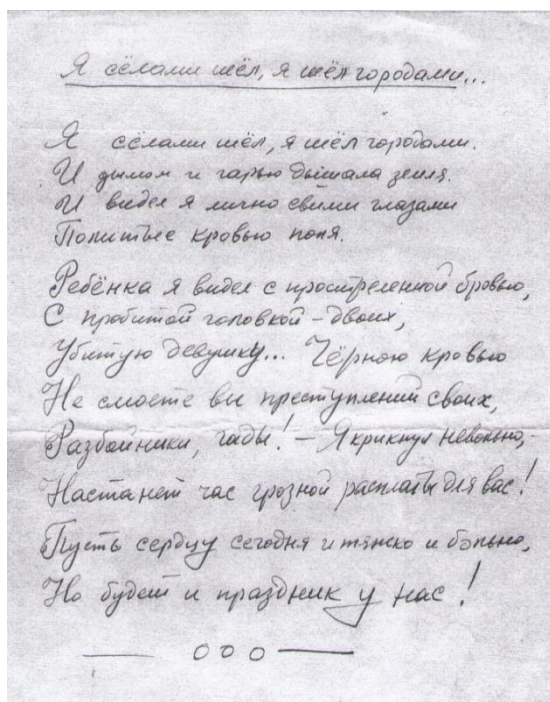 Я сёлами шёл, я шёл городами...
Я сёлами шёл, я шёл городами.
И дымом и гарью дышала земля.
И видел я лично своими глазами
Политые кровью поля.
Ребёнка я видел с простреленной бровью,
С пробитой головкой – двоих,
Убитую девушку... Чёрною кровью
Не смоете вы преступлений своих,
Разбойники, гады! – Я крикнул невольно, –
Настанет час грозной расплаты для вас!
Пусть сердцу сегодня и тяжко и больно,
Но будет и праздник у нас!
— ооо —